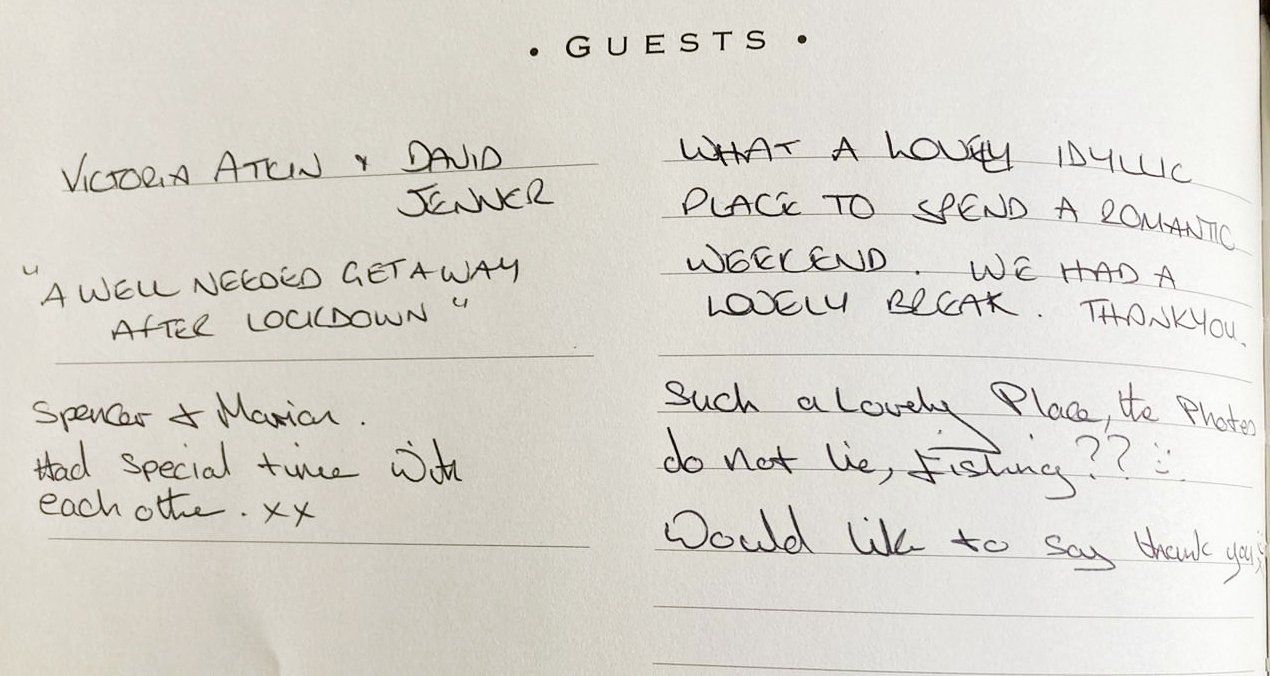 • GUESTS •
VICTORIA ATKIN & DAVID
JENNER
"A WELL NEEDED GETAWAY
AFTER LOCKDOWN"
WHAT A LOVELY IDYLLIC
PLACE TO SPEND A ROMANTIC
WEEKEND. WE HAD A
LOVELY BREAK. THANKYOU.
Spencer & Marian.
Had special time with
each other. xx
Such a Lovely Place, the Photos
do not lie, Fishing?? :)
Would like to say thank you